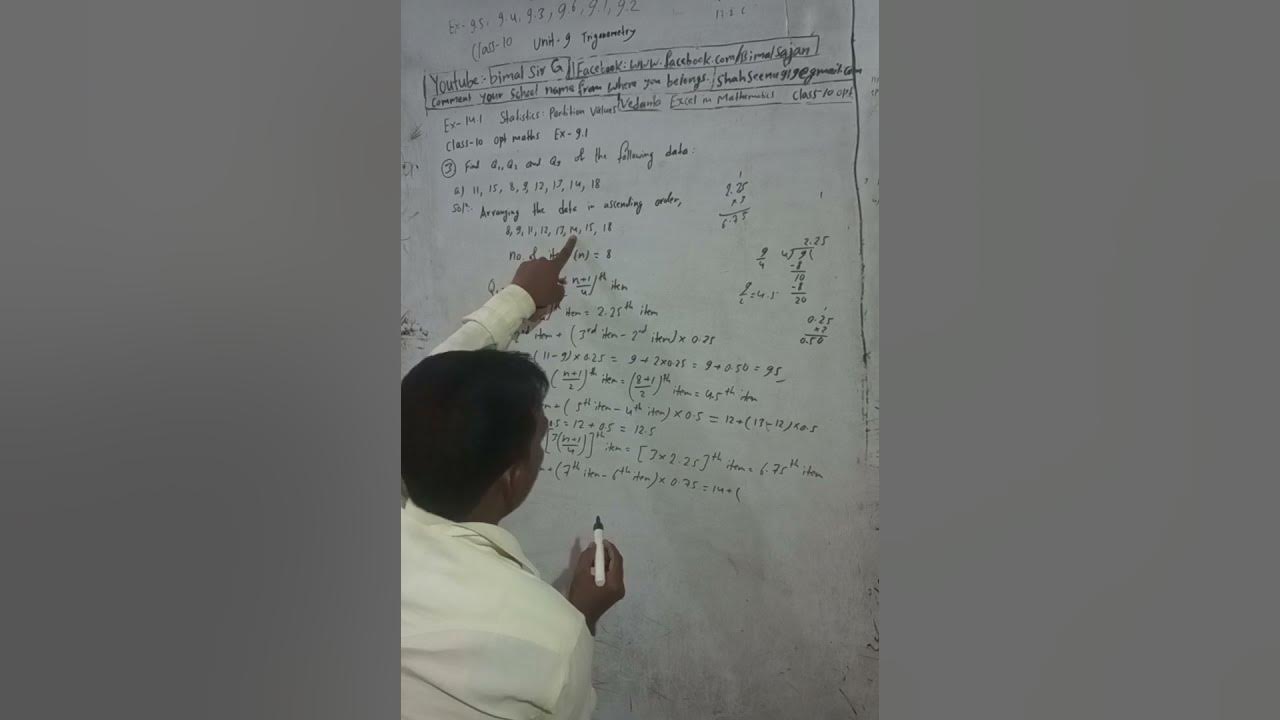 Ex-9.5, 9.4, 9.3, 9.6, 9.1, 9.2
Class-10 Unit-9 Trigonometry
Youtube: bimal Sir G Facebook: www.facebook.com/Bimalsajan
comment your School name from where you belongs.
Ex-14.1 Statistics: Partition Values Vedanta Excel in Mathematics class-10 opt
Class-10 opt maths Ex-9.1
③ Find Q₁, Q₂ and Q₃ of the following data:
a) 11, 15, 8, 9, 12, 13, 14, 18
Solⁿ: Arranging the data in ascending order,
8, 9, 11, 12, 13, 14, 15, 18
no. of (n) = 8
n+1/4)th item
item = 2.25th item
item + (3rd item - 2nd item) × 0.25
(11-9)×0.25 = 9+2×0.25 = 9+0.50 = 9.5
(n+1/2)th item = (8+1/2)th item = 4.5th item
+ (5th item - 4th item) × 0.5 = 12+(13-12)×0.5
= 12 + 0.5 = 12.5
[3(n+1/4)]th item = [3×2.25]th item = 6.75th item
+ (7th item - 6th item) × 0.75 = 14+(
1
2.25
×3
6.75
9/4
2.25
4)9(
-8
10
-8
20
9/2 = 4.5
1
0.25
×2
0.50